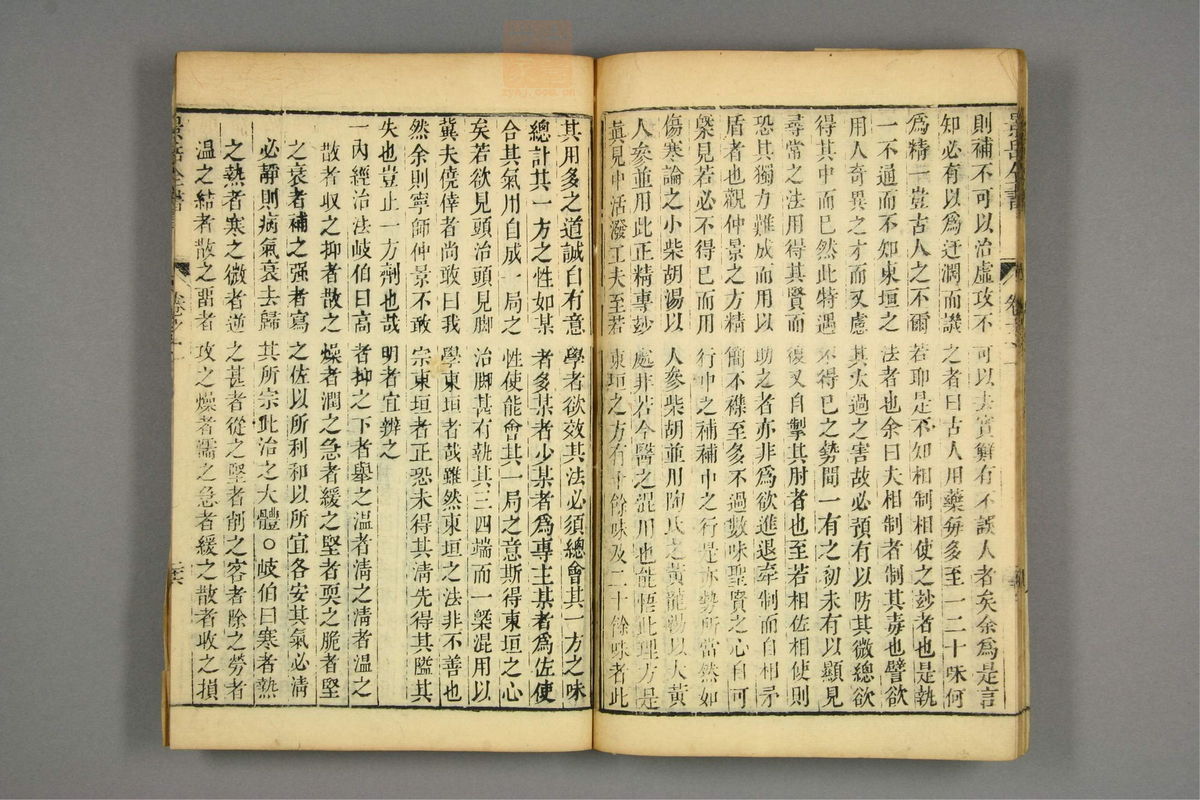 則補不可以治虛攻不可以去實鮮有不誤人者矣余爲是言
知必有以爲迂濶而議之者曰古人用藥每多至一二十味何
爲精一豈古人之不爾若耶是不知相制相使之玅者也是執
一不通而不知東垣之法者也余曰夫相制者制其毒也譬欲
用人奇異之才而又慮其太過之害故必預有以防其微總欲
得其中而巳然此特遇不得巳之勢間一有之初未有以顯見
尋常之法用得其賢而復又自掣其肘者也至若相佐相使則
恐其獨力難成而用以助之者亦非爲欲進退牽制而自相矛
盾者也觀仲景之方精簡不襍至多不過數味聖賢之心自可
槩見若必不得巳而用行中之補補中之行是亦勢所當然如
傷寒論之小柴胡湯以人參柴胡並用陶氏之黃龍湯以大黃
人參並用此正精專玅處非若今醫之混用也能悟此理方是
眞見中活潑工夫至若東垣之方有十餘味及二十餘味者此
其用多之道誠自有意學者欲效其法必須總會其一方之味
總計其一方之性如某者多某者少某者爲專主某者爲佐使
合其氣用自成一局之性使能會其一局之意斯得東垣之心
矣若欲見頭治頭見脚治脚甚有執其三四端而一槩混用以
冀夫僥倖者尚敢曰我學東垣者哉雖然東垣之法非不善也
然余則寧師仲景不敢宗東垣者正恐未得其清先得其隘其
失也豈止一方劑也哉明者宜辨之
一內經治法岐伯曰高者抑之下者舉之溫者淸之淸者溫之
散者収之抑者散之燥者潤之急者緩之堅者耎之脆者堅
之衰者補之强者寫之佐以所利和以所宜各安其氣必淸
必靜則病氣衰去歸其所宗此治之大體○岐伯曰寒者熱
之熱者寒之微者逆之甚者從之堅者削之客者除之勞者
溫之結者散之畱者攻之燥者濡之急者緩之散者收之損
景岳全書
卷之一